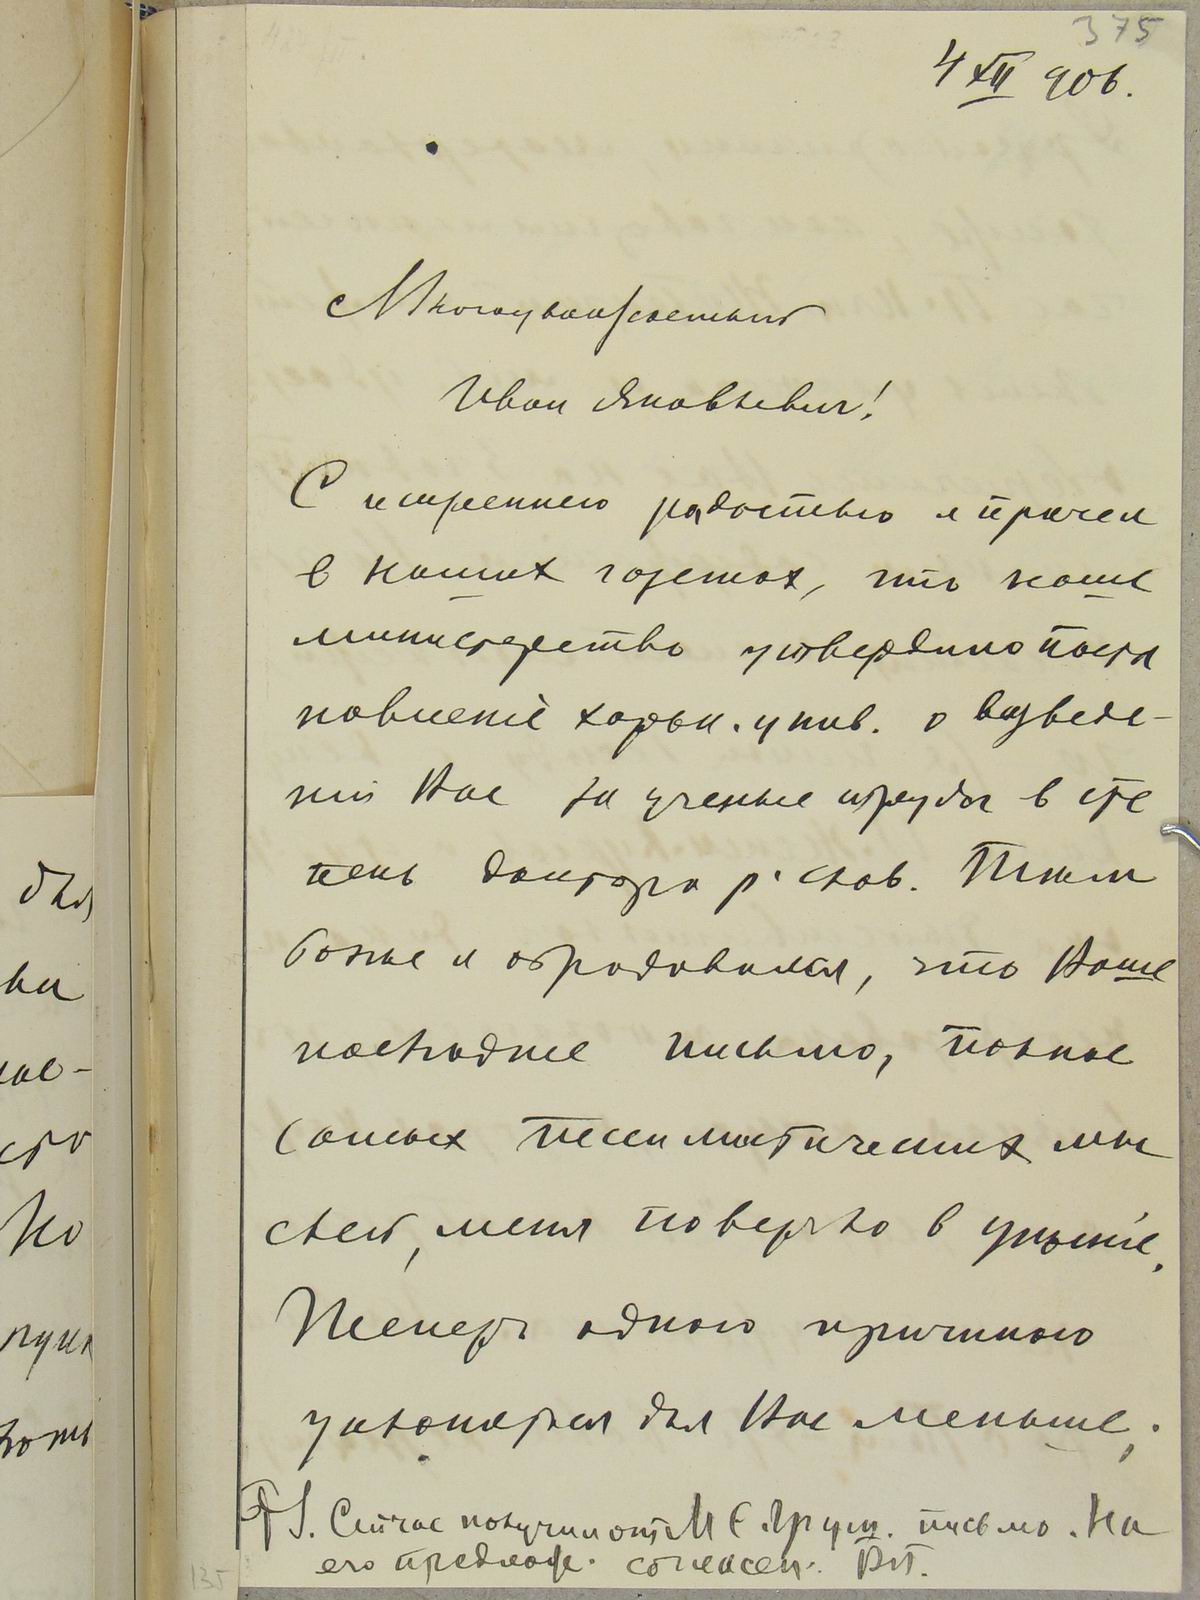 375
4 XII 906.
Многоуважаемый
Иван Яковлевич!
С искреннею радостью я прочел
в наших газетах, что наше
министерство утвердило поста
новленіе харьк. унив. о возведе-
нии Вас за ученые труды в сте
пень доктора р. слов. Тѣм
более я обрадовался, что Ваше
последнее письмо, полное
самых пессимистических мы
слей, меня повергло в уныніе.
Теперь одною причиною
для Вас меньше;
PS. Сейчас получил от М. С. Груш. письмо. На
его предлож. согласен. ВП.
135
для
ва
-
сто
Но